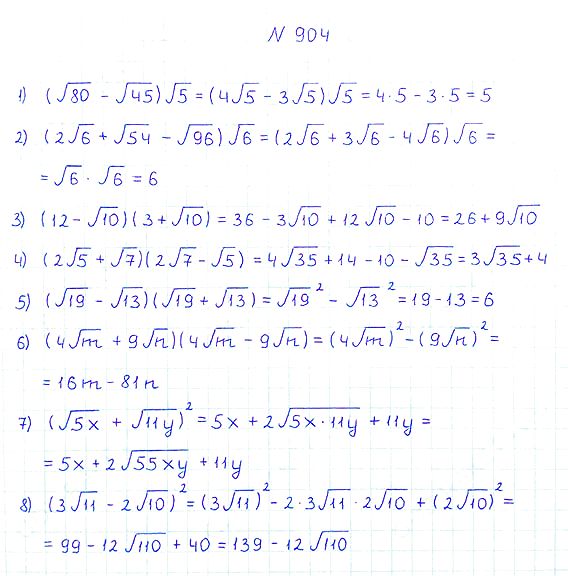 N 904
1) (√80 - √45)√5 = (4√5 - 3√5)√5 = 4·5 - 3·5 = 5
2) (2√6 + √54 - √96)√6 = (2√6 + 3√6 - 4√6)√6 =
= √6 · √6 = 6
3) (12 - √10)(3 + √10) = 36 - 3√10 + 12√10 - 10 = 26 + 9√10
4) (2√5 + √7)(2√7 - √5) = 4√35 + 14 - 10 - √35 = 3√35 + 4
5) (√19 - √13)(√19 + √13) = √19² - √13² = 19 - 13 = 6
6) (4√m + 9√n)(4√m - 9√n) = (4√m)² - (9√n)² =
= 16m - 81n
7) (√5x + √11y)² = 5x + 2√5x·11y + 11y =
= 5x + 2√55xy + 11y
8) (3√11 - 2√10)² = (3√11)² - 2·3√11·2√10 + (2√10)² =
= 99 - 12√110 + 40 = 139 - 12√110